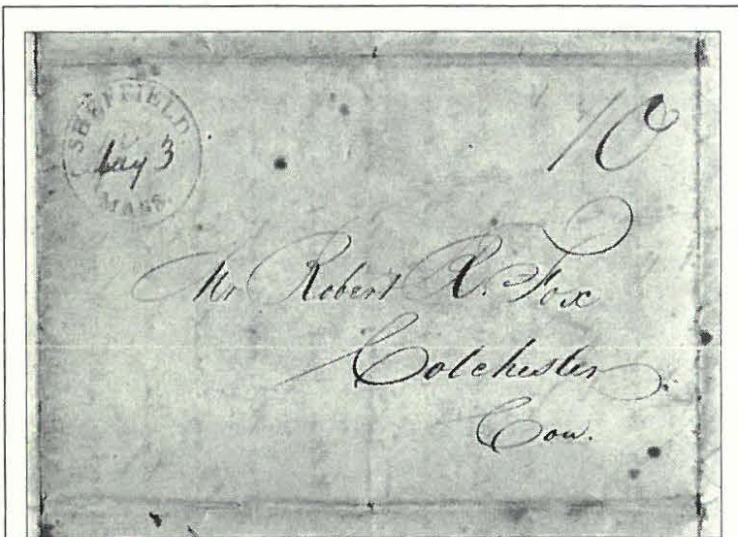 SHEFFIELD.
May 3
MASS.
10
Mr Robert R. Fox
Colchester.
Con.